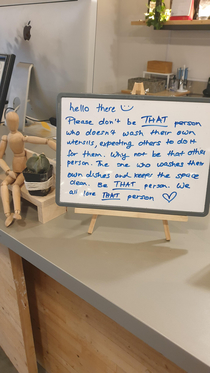 hello there
Please don't be THAT person
who doesn't wash their own
utensils, expecting others to do it
for them. Why not be that other
person. The one who washes their
own dishes and keeps the space
clean. Be THAT person. We
all love THAT person